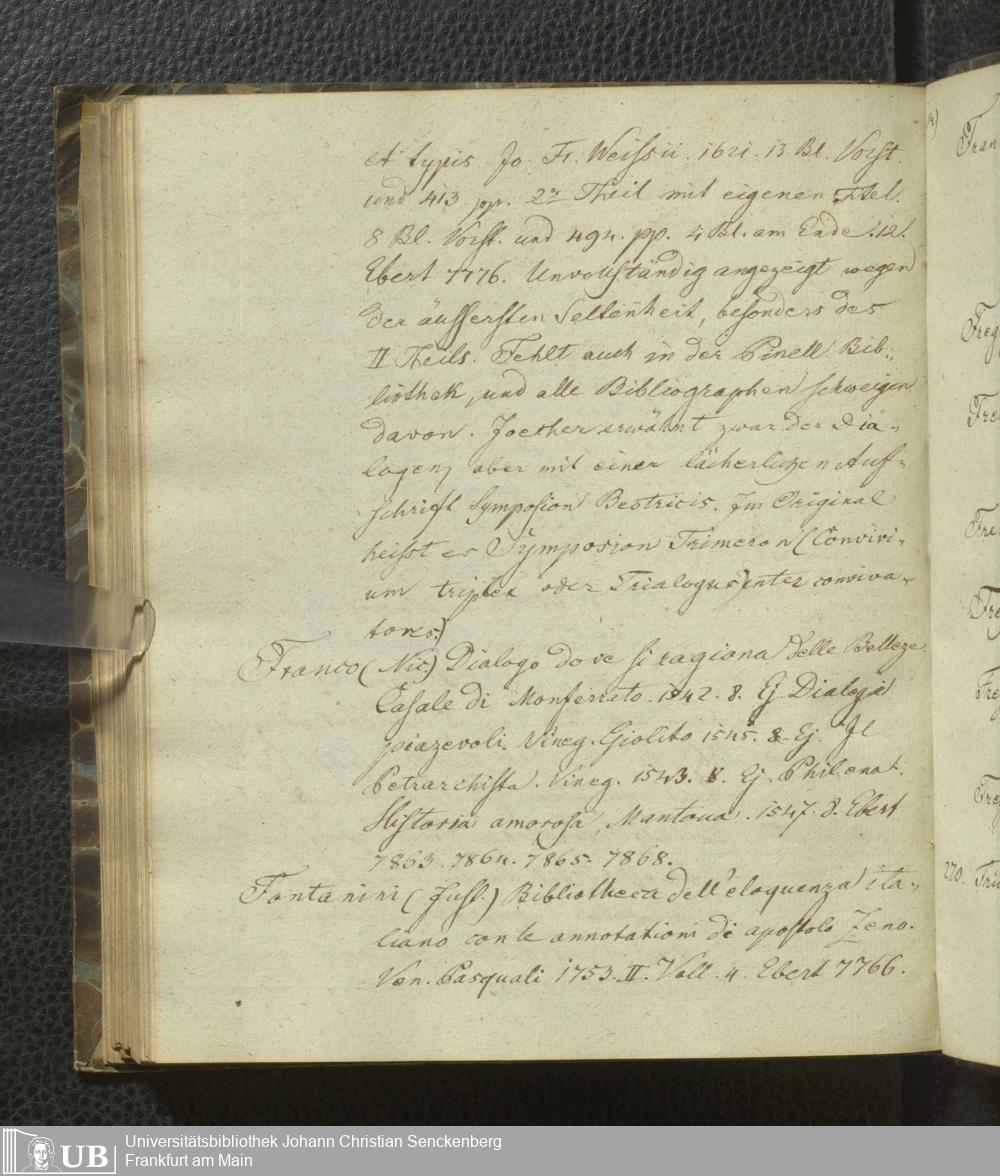 et typis Jo. Fr. Weissii. 1621. 13 Bl. Vorst.
und 413 pp. 2r Theil mit eigenen Titel.
8 Bl. Vorst. und 494. pp. 4 Bl. am Ende. 12.
Ebert 7776. Unvollständig angezeigt wegen
der äussersten Seltenheit, besonders des
II Theils. Fehlt auch in der Pinell. Bib-
liothek, und alle Bibliographen schweigen
davon. Joecher erwähnt zwar der Dia-
logen, aber mit einer lächerlichen Auf-
schrift Symposion Beotricis. Im Original
heisst es Symposion Trimeron (Convivi-
um triplex oder Trialogus inter conviva-
tores)
Franco (Nic.) Dialogo dove si ragiona delle Belleze.
Casale di Monferrato. 1542. 8. Ej. Dialogi
piazevoli. Vineg. Giolito 1545. 8. Ej. Il
Petrarchista. Vineg. 1543. 8. Ej. Philena.
Historia amorosa, Mantoua. 1547. 8. Ebert
7863. 7864. 7865. 7868.
Fontanini (Just.) Bibliotheca dell'eloquenza ita-
liano con le annotationi di apostolo Zeno.
Ven. Pasquali 1753. II. Voll. 4. Ebert 7766.
Fran
Freg
Fre
Fre
Fre
Fre
Freg
270. Fri
UB
Universitätsbibliothek Johann Christian Senckenberg
Frankfurt am Main